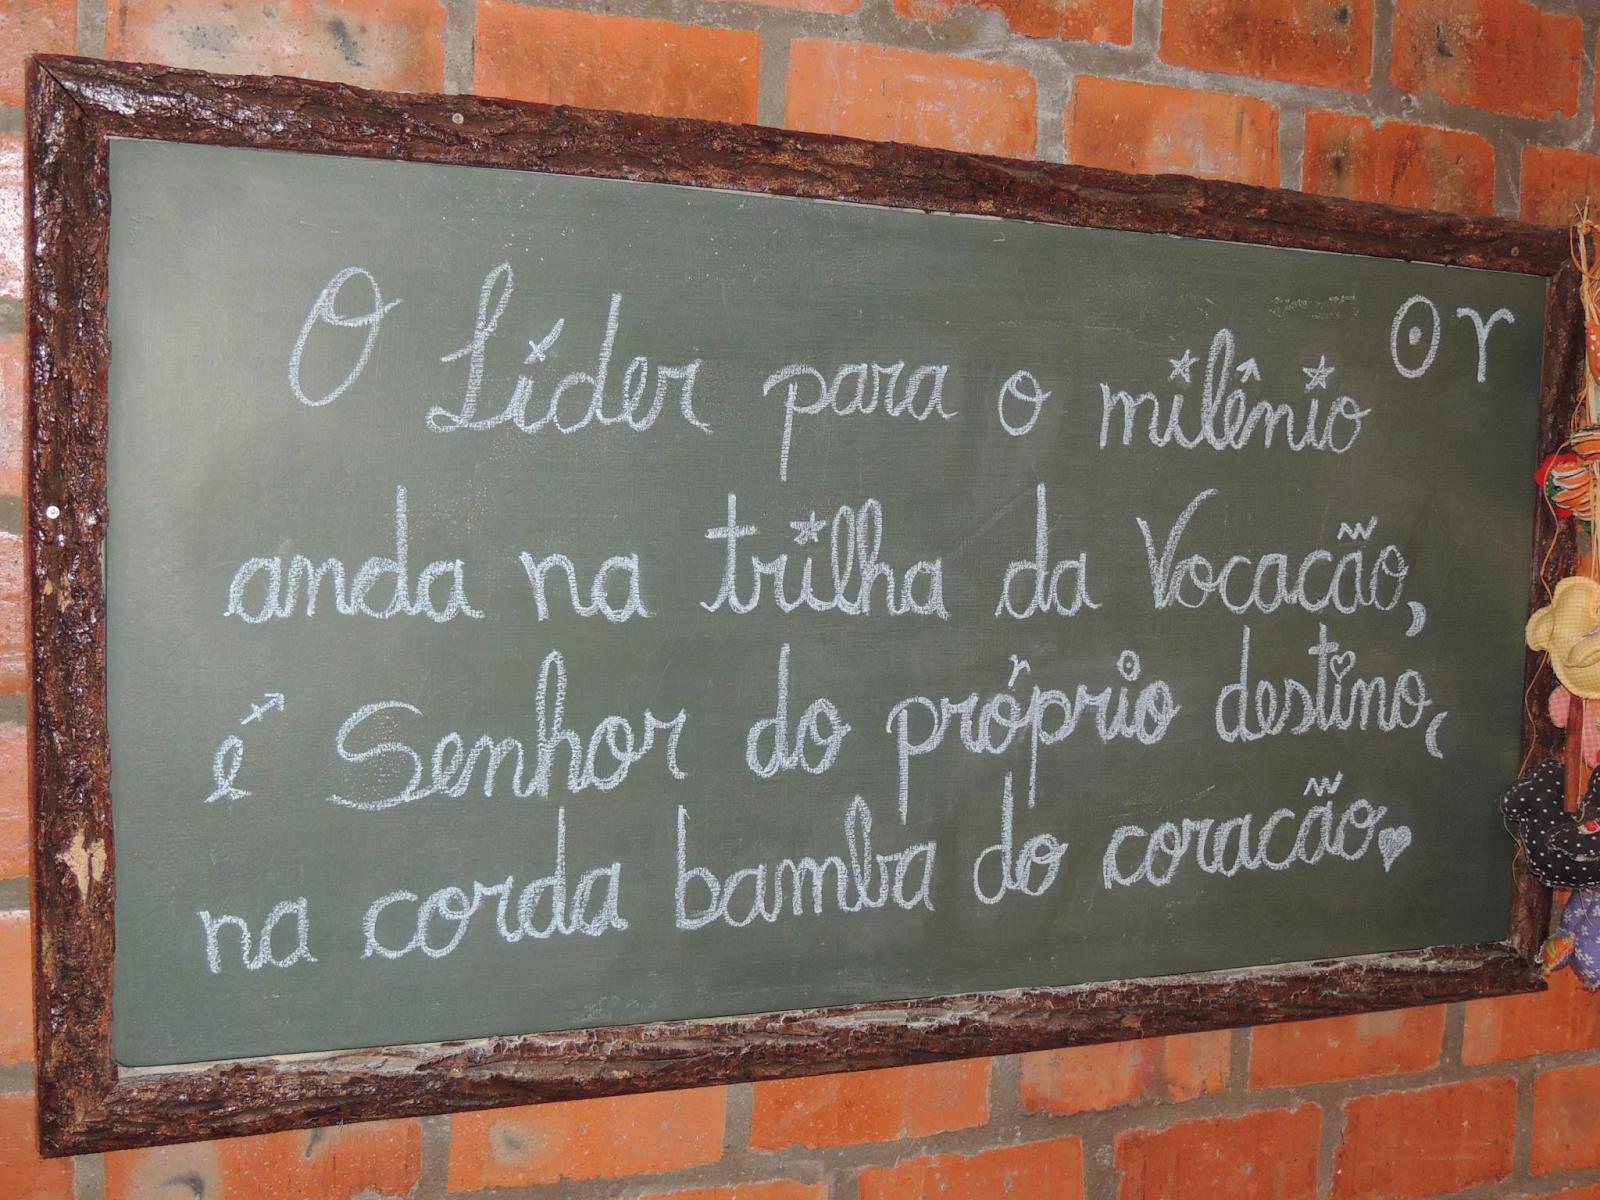 O Líder para o milênio ☉ ♈
anda na trilha da Vocacão,
é Senhor do próprio destino,
na corda bamba do coracão.